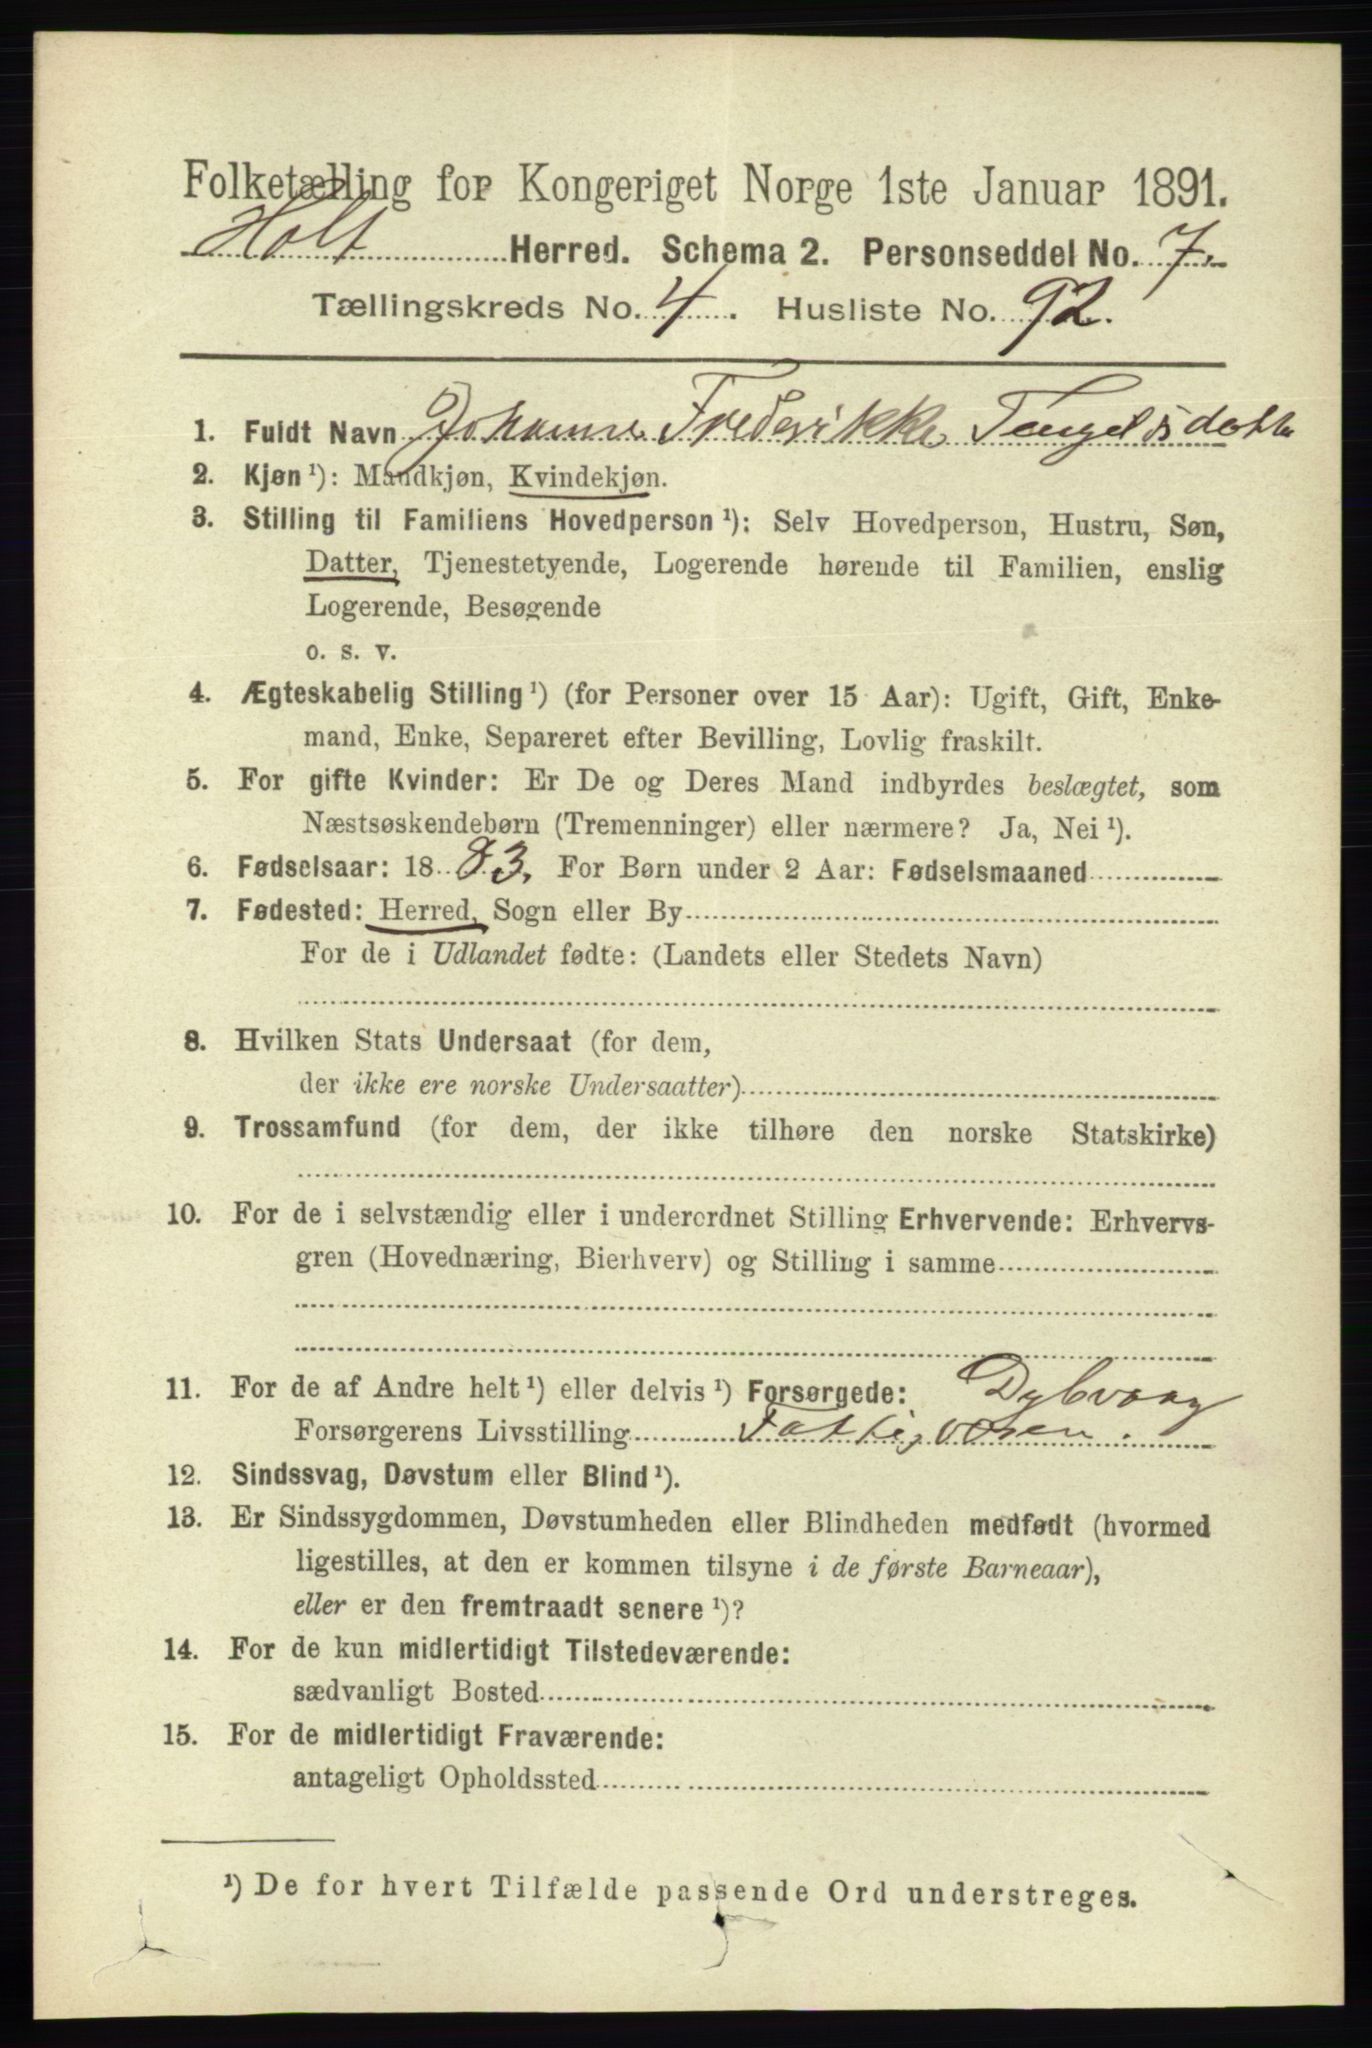 Folketælling for Kongeriget Norge 1ste Januar 1891.
Holt Herred. Schema 2. Personseddel No. 7.
Tællingskreds No. 4. Husliste No. 92.
1. Fuldt Navn Johanne Frederikke Tengelsdatte
2. Kjøn ¹): Mandkjøn, Kvindekjøn.
3. Stilling til Familiens Hovedperson ¹): Selv Hovedperson, Hustru, Søn,
Datter, Tjenestetyende, Logerende hørende til Familien, enslig
Logerende, Besøgende
o. s. v.
4. Ægteskabelig Stilling ¹) (for Personer over 15 Aar): Ugift, Gift, Enke-
mand, Enke, Separeret efter Bevilling, Lovlig fraskilt.
5. For gifte Kvinder: Er De og Deres Mand indbyrdes beslægtet, som
Næstsøskendebørn (Tremenninger) eller nærmere? Ja, Nei ¹).
6. Fødselsaar: 18 83. For Børn under 2 Aar: Fødselsmaaned
7. Fødested: Herred, Sogn eller By
For de i Udlandet fødte: (Landets eller Stedets Navn)
8. Hvilken Stats Undersaat (for dem,
der ikke ere norske Undersaatter)
9. Trossamfund (for dem, der ikke tilhøre den norske Statskirke)
10. For de i selvstændig eller i underordnet Stilling Erhvervende: Erhvervs-
gren (Hovednæring, Bierhverv) og Stilling i samme
11. For de af Andre helt ¹) eller delvis ¹) Forsørgede: Dybvaag
Forsørgerens Livsstilling Fattigvæsen.
12. Sindssvag, Døvstum eller Blind ¹).
13. Er Sindssygdommen, Døvstumheden eller Blindheden medfødt (hvormed
ligestilles, at den er kommen tilsyne i de første Barneaar),
eller er den fremtraadt senere ¹)?
14. For de kun midlertidigt Tilstedeværende:
sædvanligt Bosted
15. For de midlertidigt Fraværende:
antageligt Opholdssted
¹) De for hvert Tilfælde passende Ord understreges.